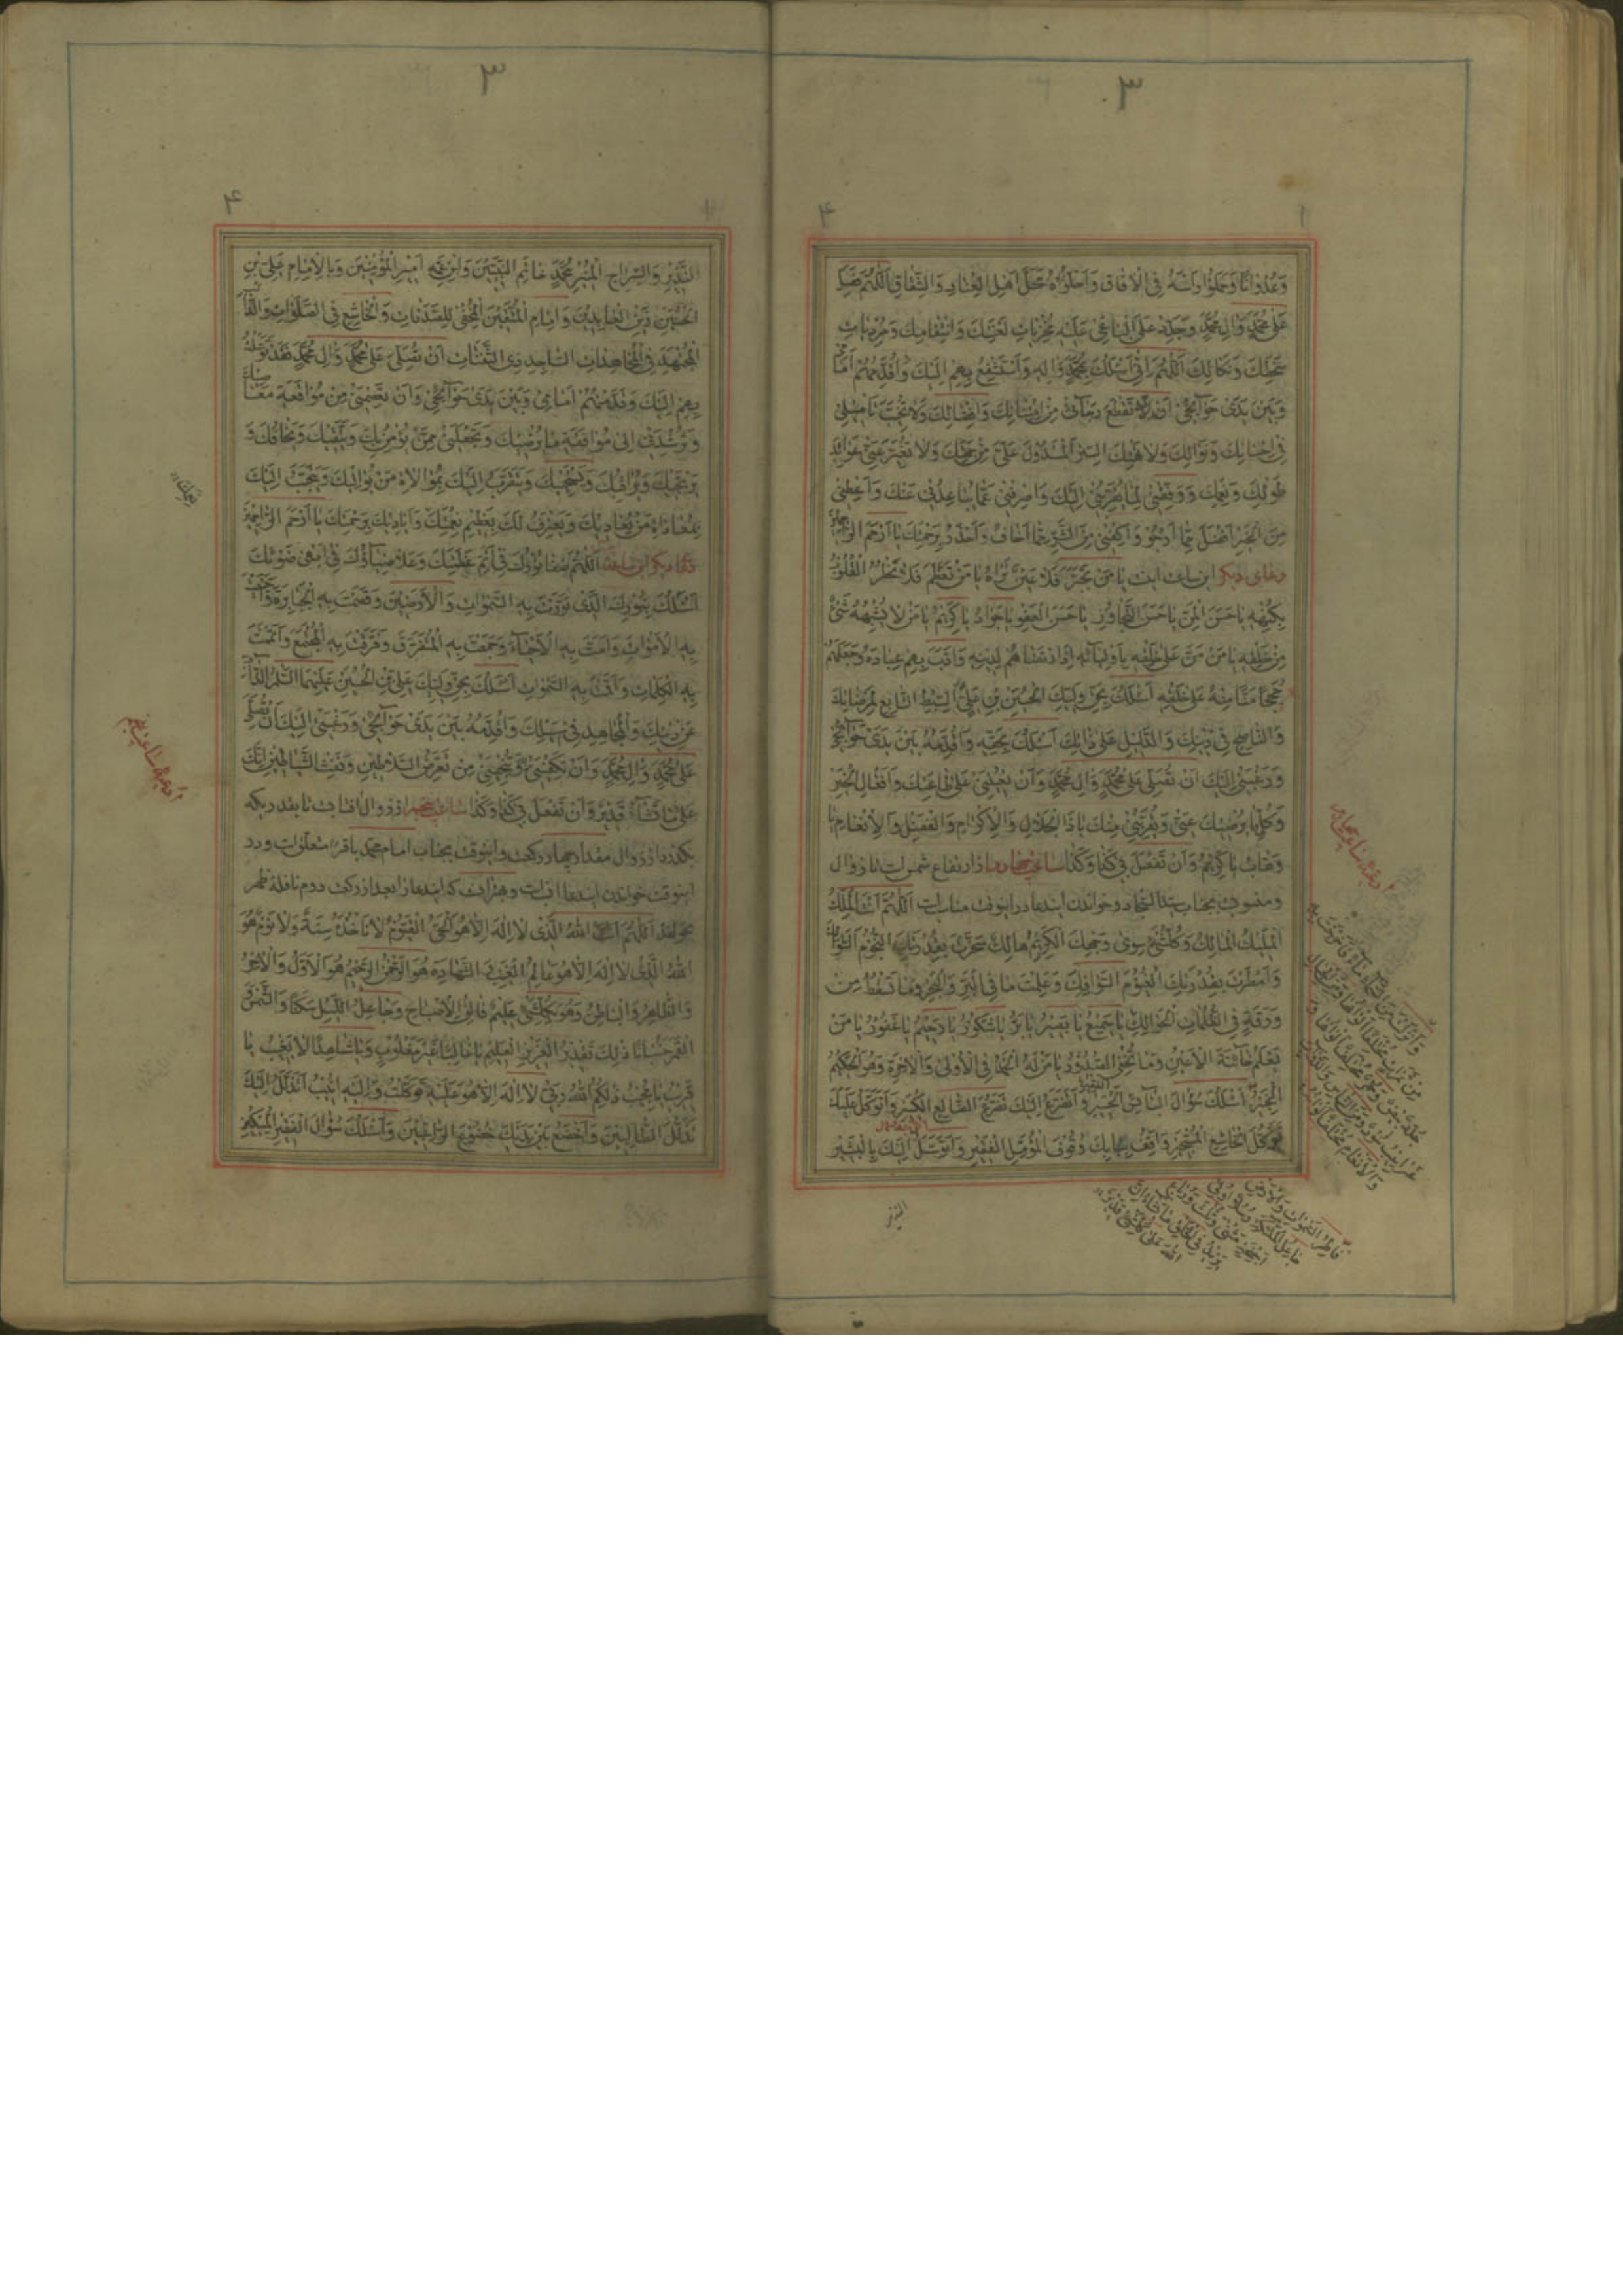 ٣
١
۴
وَعُدْوَانًا وَحَمَلُوا رَأْسَهُ فِي الْآفَاقِ وَأَحَلُّوهُ مَحَلَّ أَهْلِ الْعِنَادِ وَالشِّقَاقِ اَللّٰهُمَّ صَلِّ
عَلَى مُحَمَّدٍ وَآلِ مُحَمَّدٍ وَجَدِّدْ عَلَى الْبَاغِي عَلَيْهِ مُخْزِيَاتِ لَعْنَتِكَ وَانْتِقَامِكَ وَمُرْدِيَاتِ
سَخَطِكَ وَنَكَالِكَ اَللّٰهُمَّ إِنِّي أَسْئَلُكَ بِمُحَمَّدٍ وَآلِهِ وَأَسْتَشْفِعُ بِهِمْ إِلَيْكَ وَأُقَدِّمُهُمْ أَمَامِي
وَبَيْنَ يَدَيْ حَوَآئِجِي أَنْ لَا تَقْطَعَ رَجَآئِي مِنِ امْتِنَانِكَ وَإِفْضَالِكَ وَلَا تُخَيِّبَ تَأْمِيلِي
فِي إِحْسَانِكَ وَنَوَالِكَ وَلَا تَهْتِكَ السِّتْرَ الْمَسْدُولَ عَلَيَّ مِنْ جِهَتِكَ وَلَا تُغَيِّرَ عَنِّي عَوَائِدَ
طَوْلِكَ وَنِعَمِكَ وَوَفِّقْنِي لِمَا يُقَرِّبُنِي إِلَيْكَ وَاصْرِفْنِي عَمَّا يُبَاعِدُنِي عَنْكَ وَأَعْطِنِي
مِنَ الْخَيْرِ أَفْضَلَ مِمَّا أَرْجُو وَاكْفِنِي مِنَ الشَّرِّ مَا أَخَافُ وَأَحْذَرُ بِرَحْمَتِكَ يَا أَرْحَمَ الرَّاحِمِينَ
دعاى ديكر اين ساعت اينست يَا مَنْ تَجَبَّرَ فَلَا عَيْنٌ تَرَاهُ يَا مَنْ تَعَظَّمَ فَلَا تَخْطُرُ الْقُلُوبُ
بِكُنْهِهِ يَا حَسَنَ الْمَنِّ يَا حَسَنَ التَّجَاوُزِ يَا حَسَنَ الْعَفْوِ يَا جَوَادُ يَا كَرِيمُ يَا مَنْ لَا يُشْبِهُهُ شَيْءٌ
مِنْ خَلْقِهِ يَا مَنْ مَنَّ عَلَى خَلْقِهِ بِأَوْلِيَآئِهِ إِذِ ارْتَضَاهُمْ لِدِينِهِ وَأَدَّبَ بِهِمْ عِبَادَهُ وَجَعَلَهُمْ
حُجَجًا مَنًّا مِنْهُ عَلَى خَلْقِهِ أَسْئَلُكَ بِحَقِّ وَلِيِّكَ الْحُسَيْنِ بْنِ عَلِيٍّ السِّبْطِ التَّابِعِ لِمَرْضَاتِكَ
وَالنَّاصِحِ فِي دِينِكَ وَالدَّلِيلِ عَلَى ذَاتِكَ أَسْئَلُكَ بِحَقِّهِ وَأُقَدِّمُهُ بَيْنَ يَدَيْ حَوَآئِجِي
وَرَغْبَتِي إِلَيْكَ أَنْ تُصَلِّيَ عَلَى مُحَمَّدٍ وَآلِ مُحَمَّدٍ وَأَنْ تُعِينَنِي عَلَى طَاعَتِكَ وَأَفْعَالِ الْخَيْرِ
وَكُلِّ مَا يُرْضِيكَ عَنِّي وَيُقَرِّبُنِي مِنْكَ يَا ذَا الْجَلَالِ وَالْإِكْرَامِ وَالْفَضْلِ وَالْإِنْعَامِ يَا
وَهَّابُ يَا كَرِيمُ وَأَنْ تَفْعَلَ بِي كَذَا وَكَذَا ساعت چهارم از ارتفاع شمس است تا زوال
ومنسوب بجناب سيد السجاد وخواندن ايندعا در اينوقت مناسبست اَللّٰهُمَّ أَنْتَ الْمَلِكُ
الْمَلِيكُ الْمَالِكُ وَكُلُّ شَيْءٍ سِوَى وَجْهِكَ الْكَرِيمِ هَالِكٌ سَخَّرْتَ بِقُدْرَتِكَ النُّجُومَ السَّوَالِكَ
وَأَمْطَرْتَ بِقُدْرَتِكَ الْغُيُومَ السَّوَافِكَ وَعَلِمْتَ مَا فِي الْبَرِّ وَالْبَحْرِ وَمَا تَسْقُطُ مِنْ
وَرَقَةٍ فِي الظُّلُمَاتِ الْحَوَالِكِ يَا سَمِيعُ يَا بَصِيرُ يَا بَرُّ يَا شَكُورُ يَا رَحِيمُ يَا غَفُورُ يَا مَنْ
يَعْلَمُ خَآئِنَةَ الْأَعْيُنِ وَمَا تُخْفِي الصُّدُورُ يَا مَنْ لَهُ الْحَمْدُ فِي الْأُولَى وَالْآخِرَةِ وَهُوَ الْحَكِيمُ
الْخَبِيرُ أَسْئَلُكَ سُؤَالَ الْبَآئِسِ الْحَسِيرِ وَأَتَضَرَّعُ إِلَيْكَ تَضَرُّعَ الضَّالِعِ الْكَسِيرِ وَأَتَوَكَّلُ عَلَيْكَ
تَوَكُّلَ الْخَاشِعِ الْمُسْتَجِيرِ وَأَقِفُ بِبَابِكَ وُقُوفَ الْمُؤَمِّلِ الْفَقِيرِ وَأَتَوَسَّلُ إِلَيْكَ بِالْبَشِيرِ
النذير
دعاء ساعت چهارم
فَاطِرَ السَّمٰوَاتِ وَالْأَرْضِ
جَاعِلَ الْمَلٰئِكَةِ رُسُلًا أُولِي
أَجْنِحَةٍ مَثْنَى وَثُلَاثَ وَرُبَاعَ
يَزِيدُ فِي الْخَلْقِ مَا يَشَاءُ إِنَّ
اللّٰهَ عَلَى كُلِّ شَيْءٍ قَدِيرٌ
٣
١
۴
النَّذِيرِ وَالسِّرَاجِ الْمُنِيرِ مُحَمَّدٍ خَاتَمِ النَّبِيِّينَ وَابْنِ عَمِّهِ أَمِيرِ الْمُؤْمِنِينَ وَبِالْإِمَامِ عَلِيِّ بْنِ
الْحُسَيْنِ زَيْنِ الْعَابِدِينَ وَإِمَامِ الْمُتَّقِينَ الْمُخْفِي لِلصَّدَقَاتِ وَالْخَاشِعِ فِي الصَّلَوَاتِ وَالدَّآئِبِ
الْمُجْتَهِدِ فِي الْمُجَاهَدَاتِ السَّاجِدِ ذِي الثَّفِنَاتِ أَنْ تُصَلِّيَ عَلَى مُحَمَّدٍ وَآلِ مُحَمَّدٍ فَقَدْ تَوَسَّلْتُ
بِهِمْ إِلَيْكَ وَقَدَّمْتُهُمْ أَمَامِي وَبَيْنَ يَدَيْ حَوَآئِجِي وَأَنْ تَعْصِمَنِي مِنْ مُوَاقَعَةِ مَعَاصِيكَ
وَتُرْشِدَنِي إِلَى مُوَافَقَةِ مَا يُرْضِيكَ وَتَجْعَلَنِي مِمَّنْ يُؤْمِنُ بِكَ وَيَتَّقِيكَ وَيَخَافُكَ وَ
يَرْتَجِيكَ وَيُرَاقِبُكَ وَيَسْتَحْيِيكَ وَيَتَقَرَّبُ إِلَيْكَ بِمُوَالَاةِ مَنْ يُوَالِيكَ وَيَتَحَبَّبُ إِلَيْكَ
بِمُعَادَاةِ مَنْ يُعَادِيكَ وَيَعْتَرِفُ لَكَ بِعَظِيمِ نِعْمَتِكَ وَأَيَادِيكَ بِرَحْمَتِكَ يَا أَرْحَمَ الرَّاحِمِينَ
دعاء ديكر اين ساعت اَللّٰهُمَّ صَفَا نُورُكَ فِي أَتَمِّ عَظَمَتِكَ وَعَلَا ضِيَآؤُكَ فِي أَبْهَى ضَوْئِكَ
أَسْئَلُكَ بِنُورِكَ الَّذِي نَوَّرْتَ بِهِ السَّمٰوَاتِ وَالْأَرَضِينَ وَقَصَمْتَ بِهِ الْجَبَابِرَةَ وَأَحْيَيْتَ
بِهِ الْأَمْوَاتَ وَأَمَتَّ بِهِ الْأَحْيَآءَ وَجَمَعْتَ بِهِ الْمُتَفَرِّقَ وَفَرَّقْتَ بِهِ الْمُجْتَمِعَ وَأَتْمَمْتَ
بِهِ الْكَلِمَاتِ وَأَقَمْتَ بِهِ السَّمٰوَاتِ أَسْئَلُكَ بِحَقِّ وَلِيِّكَ عَلِيِّ بْنِ الْحُسَيْنِ عَلَيْهِمَا السَّلَامُ الذَّابِّ
عَنْ دِينِكَ وَالْمُجَاهِدِ فِي سَبِيلِكَ وَأُقَدِّمُهُ بَيْنَ يَدَيْ حَوَآئِجِي وَرَغْبَتِي إِلَيْكَ أَنْ تُصَلِّيَ
عَلَى مُحَمَّدٍ وَآلِ مُحَمَّدٍ وَأَنْ تَكْفِيَنِي بِهِ وَتُنْجِيَنِي مِنْ تَعَرُّضِ السَّلَاطِينِ وَنَفْثِ الشَّيَاطِينِ إِنَّكَ
عَلَى مَا تَشَآءُ قَدِيرٌ وَأَنْ تَفْعَلَ بِي كَذَا وَكَذَا ساعت پنجم از زوال آفتاب تا بقدريكه
بكذرد از زوال مقدار چهار ركعت واينوقت بجناب امام محمد باقر متعلق است ودر
اينوقت خواندن ايندعا انسب است وبهتر آنست كه ايندعا را بعد از ركعت دوم نافله ظهر
بخواند اَللّٰهُمَّ أَنْتَ اللّٰهُ الَّذِي لَا إِلٰهَ إِلَّا هُوَ الْحَيُّ الْقَيُّومُ لَا تَأْخُذُهُ سِنَةٌ وَلَا نَوْمٌ هُوَ
اللّٰهُ الَّذِي لَا إِلٰهَ إِلَّا هُوَ عَالِمُ الْغَيْبِ وَالشَّهَادَةِ هُوَ الرَّحْمٰنُ الرَّحِيمُ هُوَ الْأَوَّلُ وَالْآخِرُ
وَالظَّاهِرُ وَالْبَاطِنُ وَهُوَ بِكُلِّ شَيْءٍ عَلِيمٌ فَالِقُ الْإِصْبَاحِ وَجَاعِلُ اللَّيْلِ سَكَنًا وَالشَّمْسَ وَ
الْقَمَرَ حُسْبَانًا ذٰلِكَ تَقْدِيرُ الْعَزِيزِ الْعَلِيمِ يَا غَالِبًا غَيْرَ مَغْلُوبٍ وَيَا شَاهِدًا لَا يَغِيبُ يَا
قَرِيبُ يَا مُجِيبُ ذٰلِكُمُ اللّٰهُ رَبِّي لَا إِلٰهَ إِلَّا هُوَ عَلَيْهِ تَوَكَّلْتُ وَإِلَيْهِ أُنِيبُ أَتَذَلَّلُ إِلَيْكَ
تَذَلُّلَ الطَّالِبِينَ وَأَخْضَعُ بَيْنَ يَدَيْكَ خُضُوعَ الرَّاغِبِينَ وَأَسْئَلُكَ سُؤَالَ الْفَقِيرِ الْمِسْكِينِ
دعاء ساعت پنجم